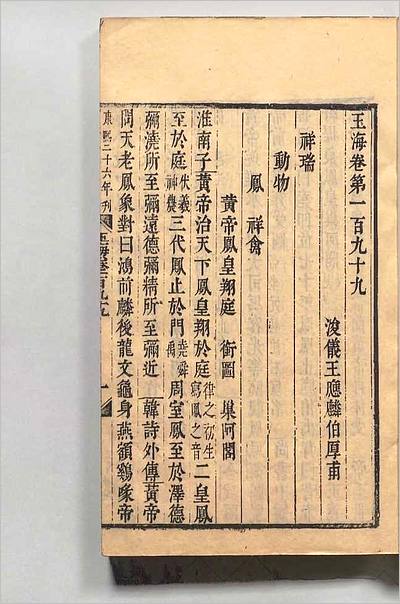 玉海卷第一百九十九
浚儀王應麟伯厚甫
祥瑞
動物
鳳 祥禽
黃帝鳳皇翔庭 銜圖 巢阿閣
淮南子黃帝治天下鳳皇翔於庭律之初生寫鳳之音二皇鳳
至於庭伏羲神農三代鳳止於門堯舜禹周室鳳至於澤德
彌澆所至彌遠德彌精所至彌近 韓詩外傳黃帝
問天老鳳象對曰鴻前麟後龍文龜身燕頷雞喙帝
康熙二十六年刊 玉海卷一百九十九 一